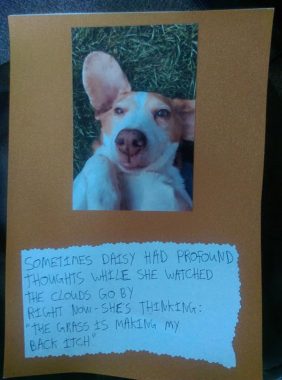 SOMETIMES DAISY HAD PROFOUND
THOUGHTS WHILE SHE WATCHED
THE CLOUDS GO BY
RIGHT NOW - SHE'S THINKING:
"THE GRASS IS MAKING MY
BACK ITCH"